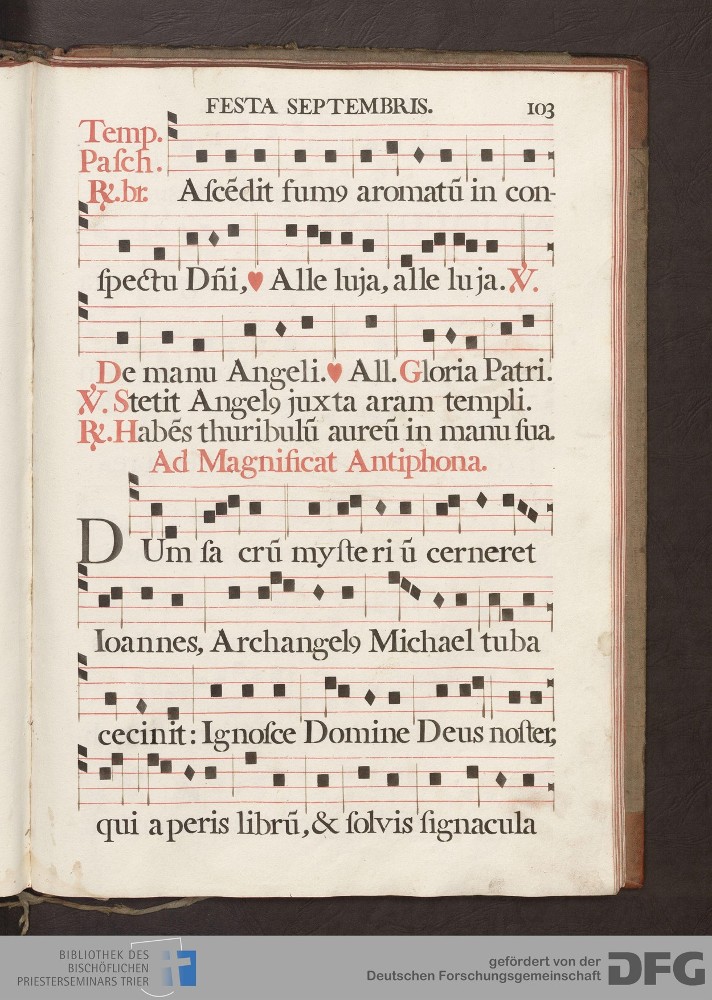 FESTA SEPTEMBRIS. 103
Temp.
Paſch.
℟.br. Aſcẽdit fumꝰ aromatũ in con-
ſpectu Dñi,♥ Alle luja, alle luja. ℣.
De manu Angeli.♥ All. Gloria Patri.
℣. Stetit Angelꝰ juxta aram templi.
℟. Habẽs thuribulũ aureũ in manu ſua.
Ad Magnificat Antiphona.
DUm ſa crũ myſte ri ũ cerneret
Ioannes, Archangelꝰ Michael tuba
cecinit: Ignoſce Domine Deus noſter,
qui aperis librũ, & ſolvis ſignacula
BIBLIOTHEK DES
BISCHÖFLICHEN
PRIESTERSEMINARS TRIER
gefördert von der
Deutschen Forschungsgemeinschaft DFG